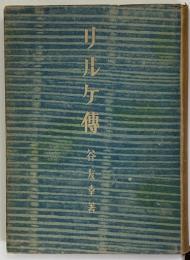 リルケ傳
谷友幸著